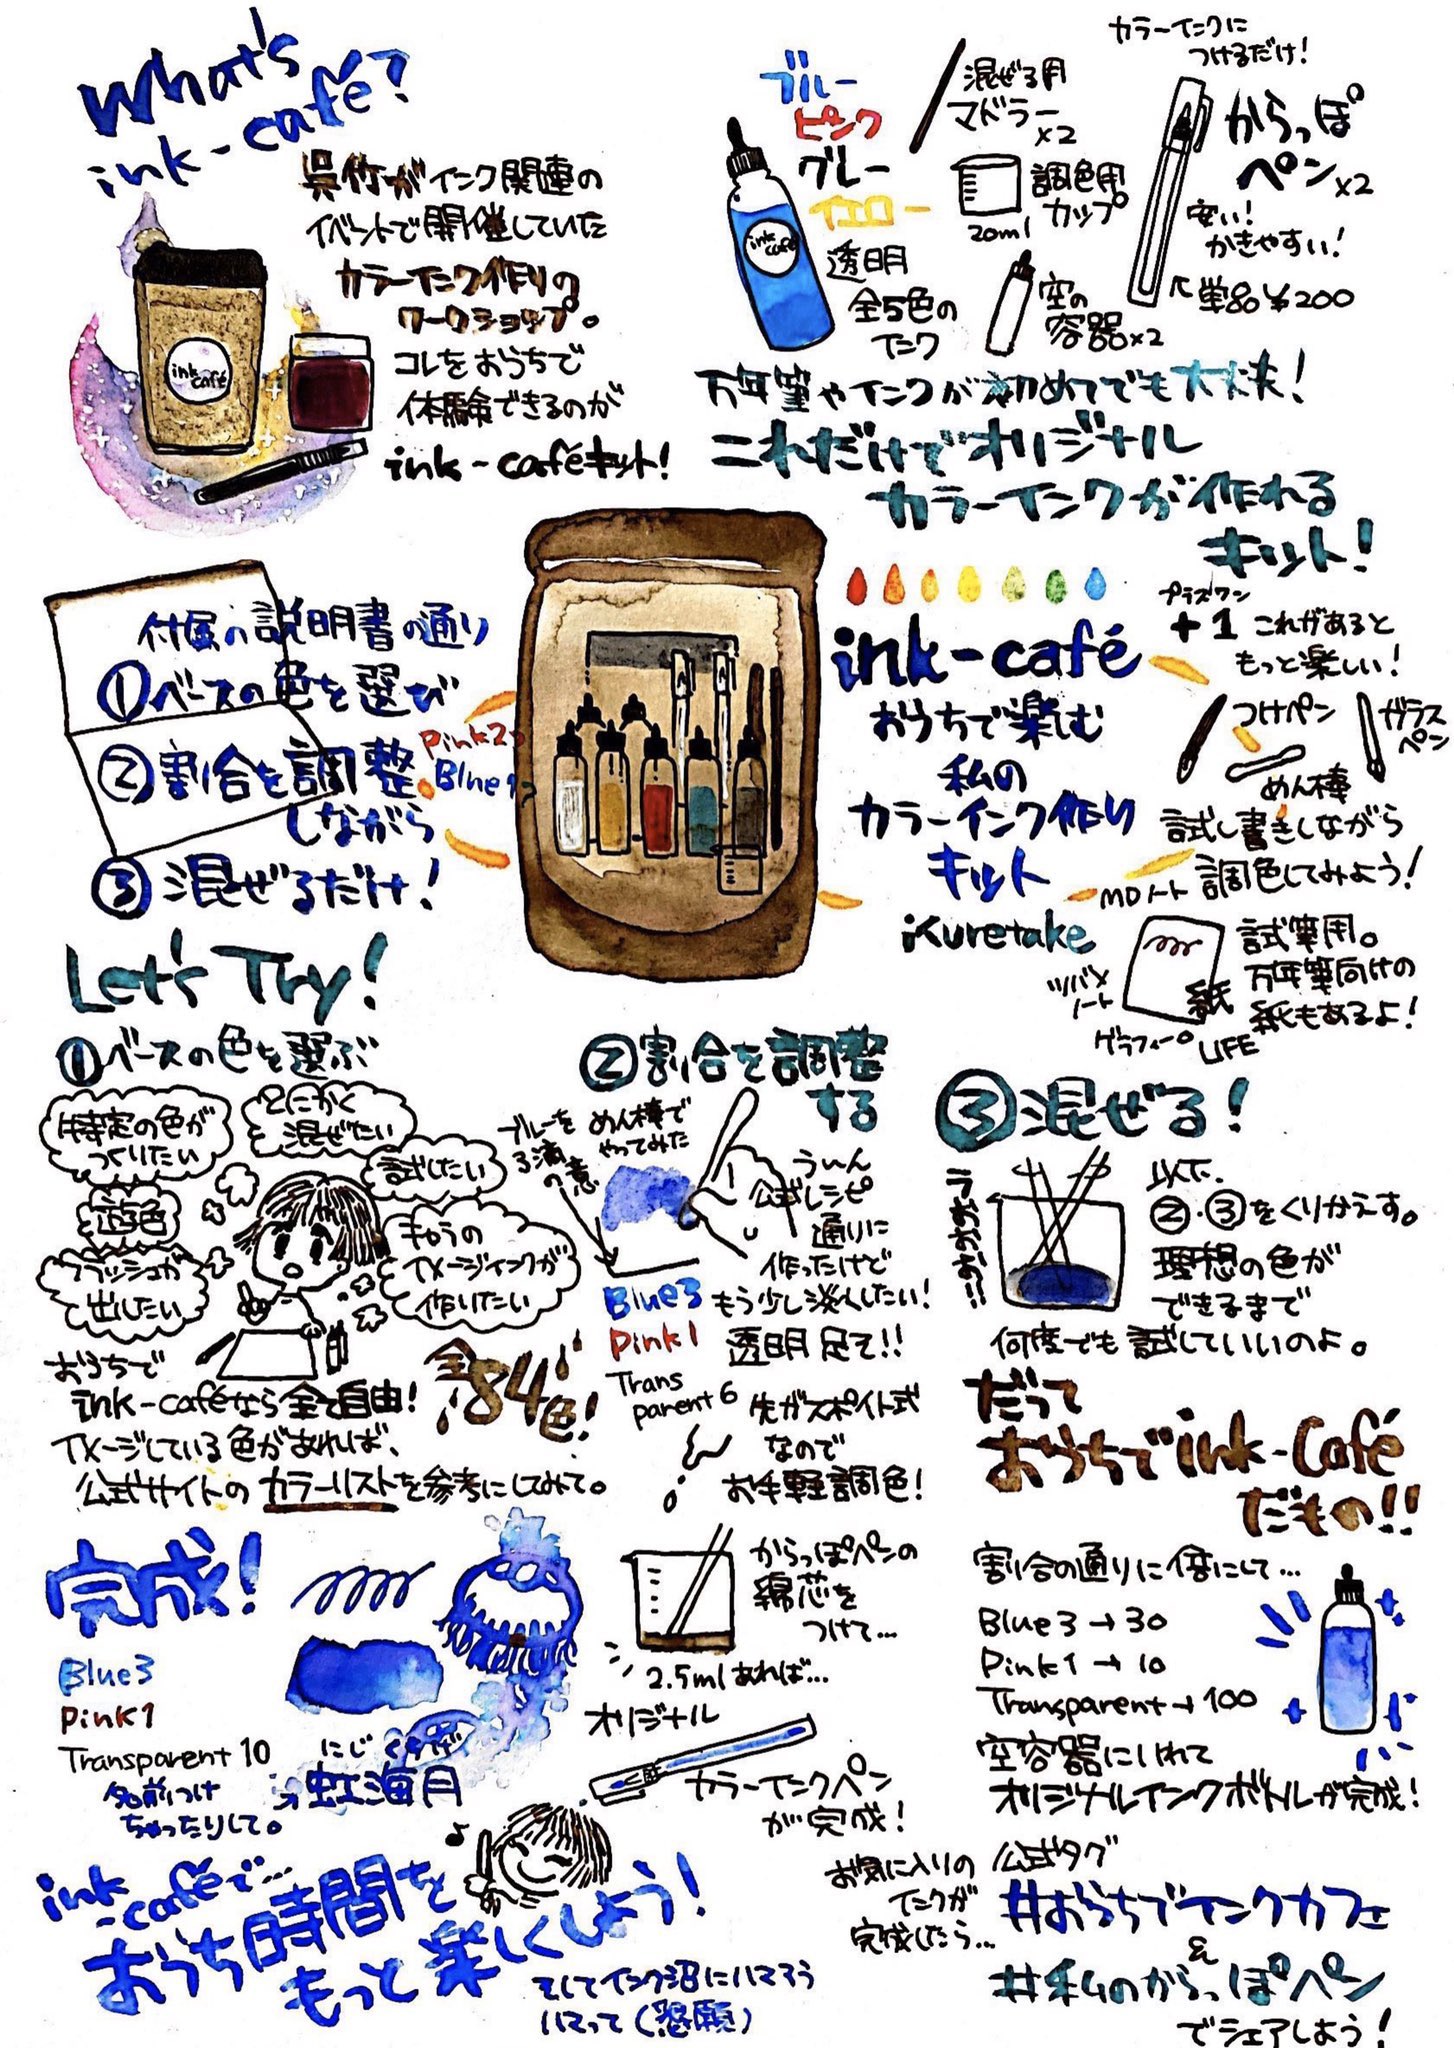 What's
ink-café?
呉竹がインク関連の
イベントで開催していた
カラーインク作りの
ワークショップ。
コレをおうちで
体験できるのが
ink-caféキット!
ink
café
ブルー
ピンク
グレー
イエロー
透明
全5色の
インク
ink
café
混ぜる用
マドラー
×2
調色用
カップ
20ml
空の
容器×2
カラーインクに
つけるだけ!
からっぽ
ペン×2
安い!
かきやすい!
単品¥200
万年筆やインクが初めてでも大丈夫!
これだけでオリジナル
カラーインクが作れる
キット!
付属の説明書の通り
①ベースの色を選び
②割合を調整
しながら
③混ぜるだけ!
Pink2
Blue1
ink-café
おうちで楽しむ
私の
カラーインク作り
キット
Kuretake
プラスワン
+1 これがあると
もっと楽しい!
つけペン
ガラス
ペン
めん棒
試し書きしながら
調色してみよう!
MDノート
ツバメ
ノート
グラフィーロ
LIFE
紙
試筆用。
万年筆向けの
紙もあるよ!
Let's Try!
①ベースの色を選ぶ
特定の色が
つくりたい
とにかく
混ぜたい
試したい
遊色
フラッシュが
出したい
キャラの
イメージインクが
作りたい
おうちで
ink-caféなら全て自由!
全84色!
イメージしている色があれば、
公式サイトのカラーリストを参考にしてみて。
②割合を調整
する
ブルーを
3滴
の意
めん棒で
やってみた
Blue3
Pink1
Trans
parent6
うーん
公式レシピ
通りに
作ったけど
もう少し淡くしたい!
透明足て!!
先がスポイト式
なので
お手軽調色!
③混ぜる!
以下、
②・③をくりかえす。
理想の色が
できるまで
何度でも試していいのよ。
だって
おうちでink-Café
だもの!!
完成!
Blue3
Pink1
Transparent10
名前つけ
ちゃったりして。
にじくらげ
虹海月
からっぽペンの
綿芯を
つけて…
2.5mlあれば…
オリジナル
カラーインクペン
が完成!
割合の通りに倍にして…
Blue3→30
Pink1→10
Transparent→100
空容器にいれて
オリジナルインクボトルが完成!
ink
-caféで…
おうち時間を
もっと楽しくしよう!
そしてインク沼にハマろう
ハマって(懇願)
お気に入りの
インクが
完成したら…
公式タグ
#おうちでインクカフェ
&
#私のからっぽペン
でシェアしよう!